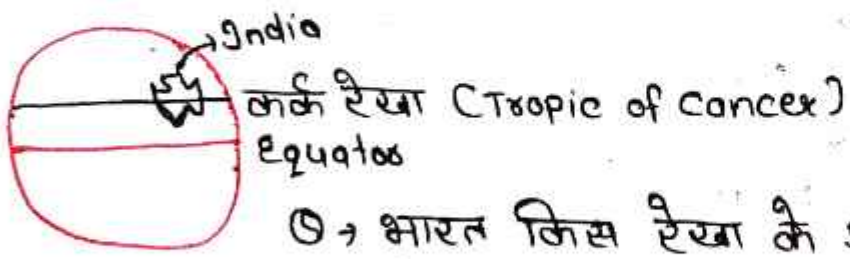 →India
कर्क रेखा (Tropic of Cancer)
Equator
Q → भारत किस रेखा के